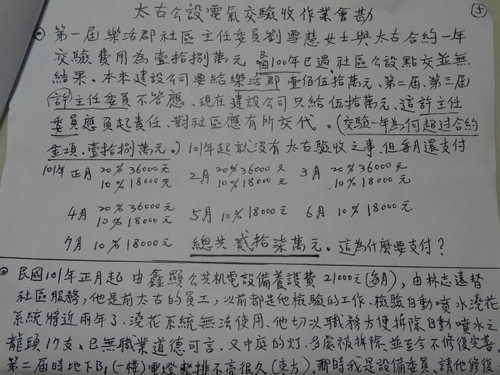 太古公設電氣交驗收作業會勘
第一屆樂活郡社區主任委員劉雪慧女士與太古合約一年
交驗費用為壹拾捌萬元 100年已過,社區公設點交並無
結果。本來建設公司要給樂活郡壹佰伍拾萬元、第二屆、第三屆
許主任委員不答應、現在建設公司只給伍拾萬元、這許主任
委員應負起責任、對社區應有所交代。(交驗一年為何超过合約
金項、壹拾捌萬元。)101年起就沒有太古驗收之事、但每月還支付
101年 正月 20% 36000元 2月 20% 36000元 3月 20% 36000元
10% 18000元 10% 18000元 10% 18000元
4月 20% 36000元 5月 10% 18000元 6月 10% 18000元
10% 18000元
7月 10% 18000元 總共 貳拾柒萬元。這為什麼要支付?
民國101年正月起由鑫顥公共机電設備養護費21000元(每月),由林志遠替
社區服務,他是前太古的員工,以前都是他檢驗的工作。檢驗自動噴水澆花
系統將近兩年了、澆花系統無法使用、他切以職務方便拆除自動噴水之
龍頭17支、已無職業道德可言、又中庭的灯、多處被拆除並至今不修復完善。
第二屆時地下B1(一樓)電燈 排不亮很久 那時我是設備委員、請他修復